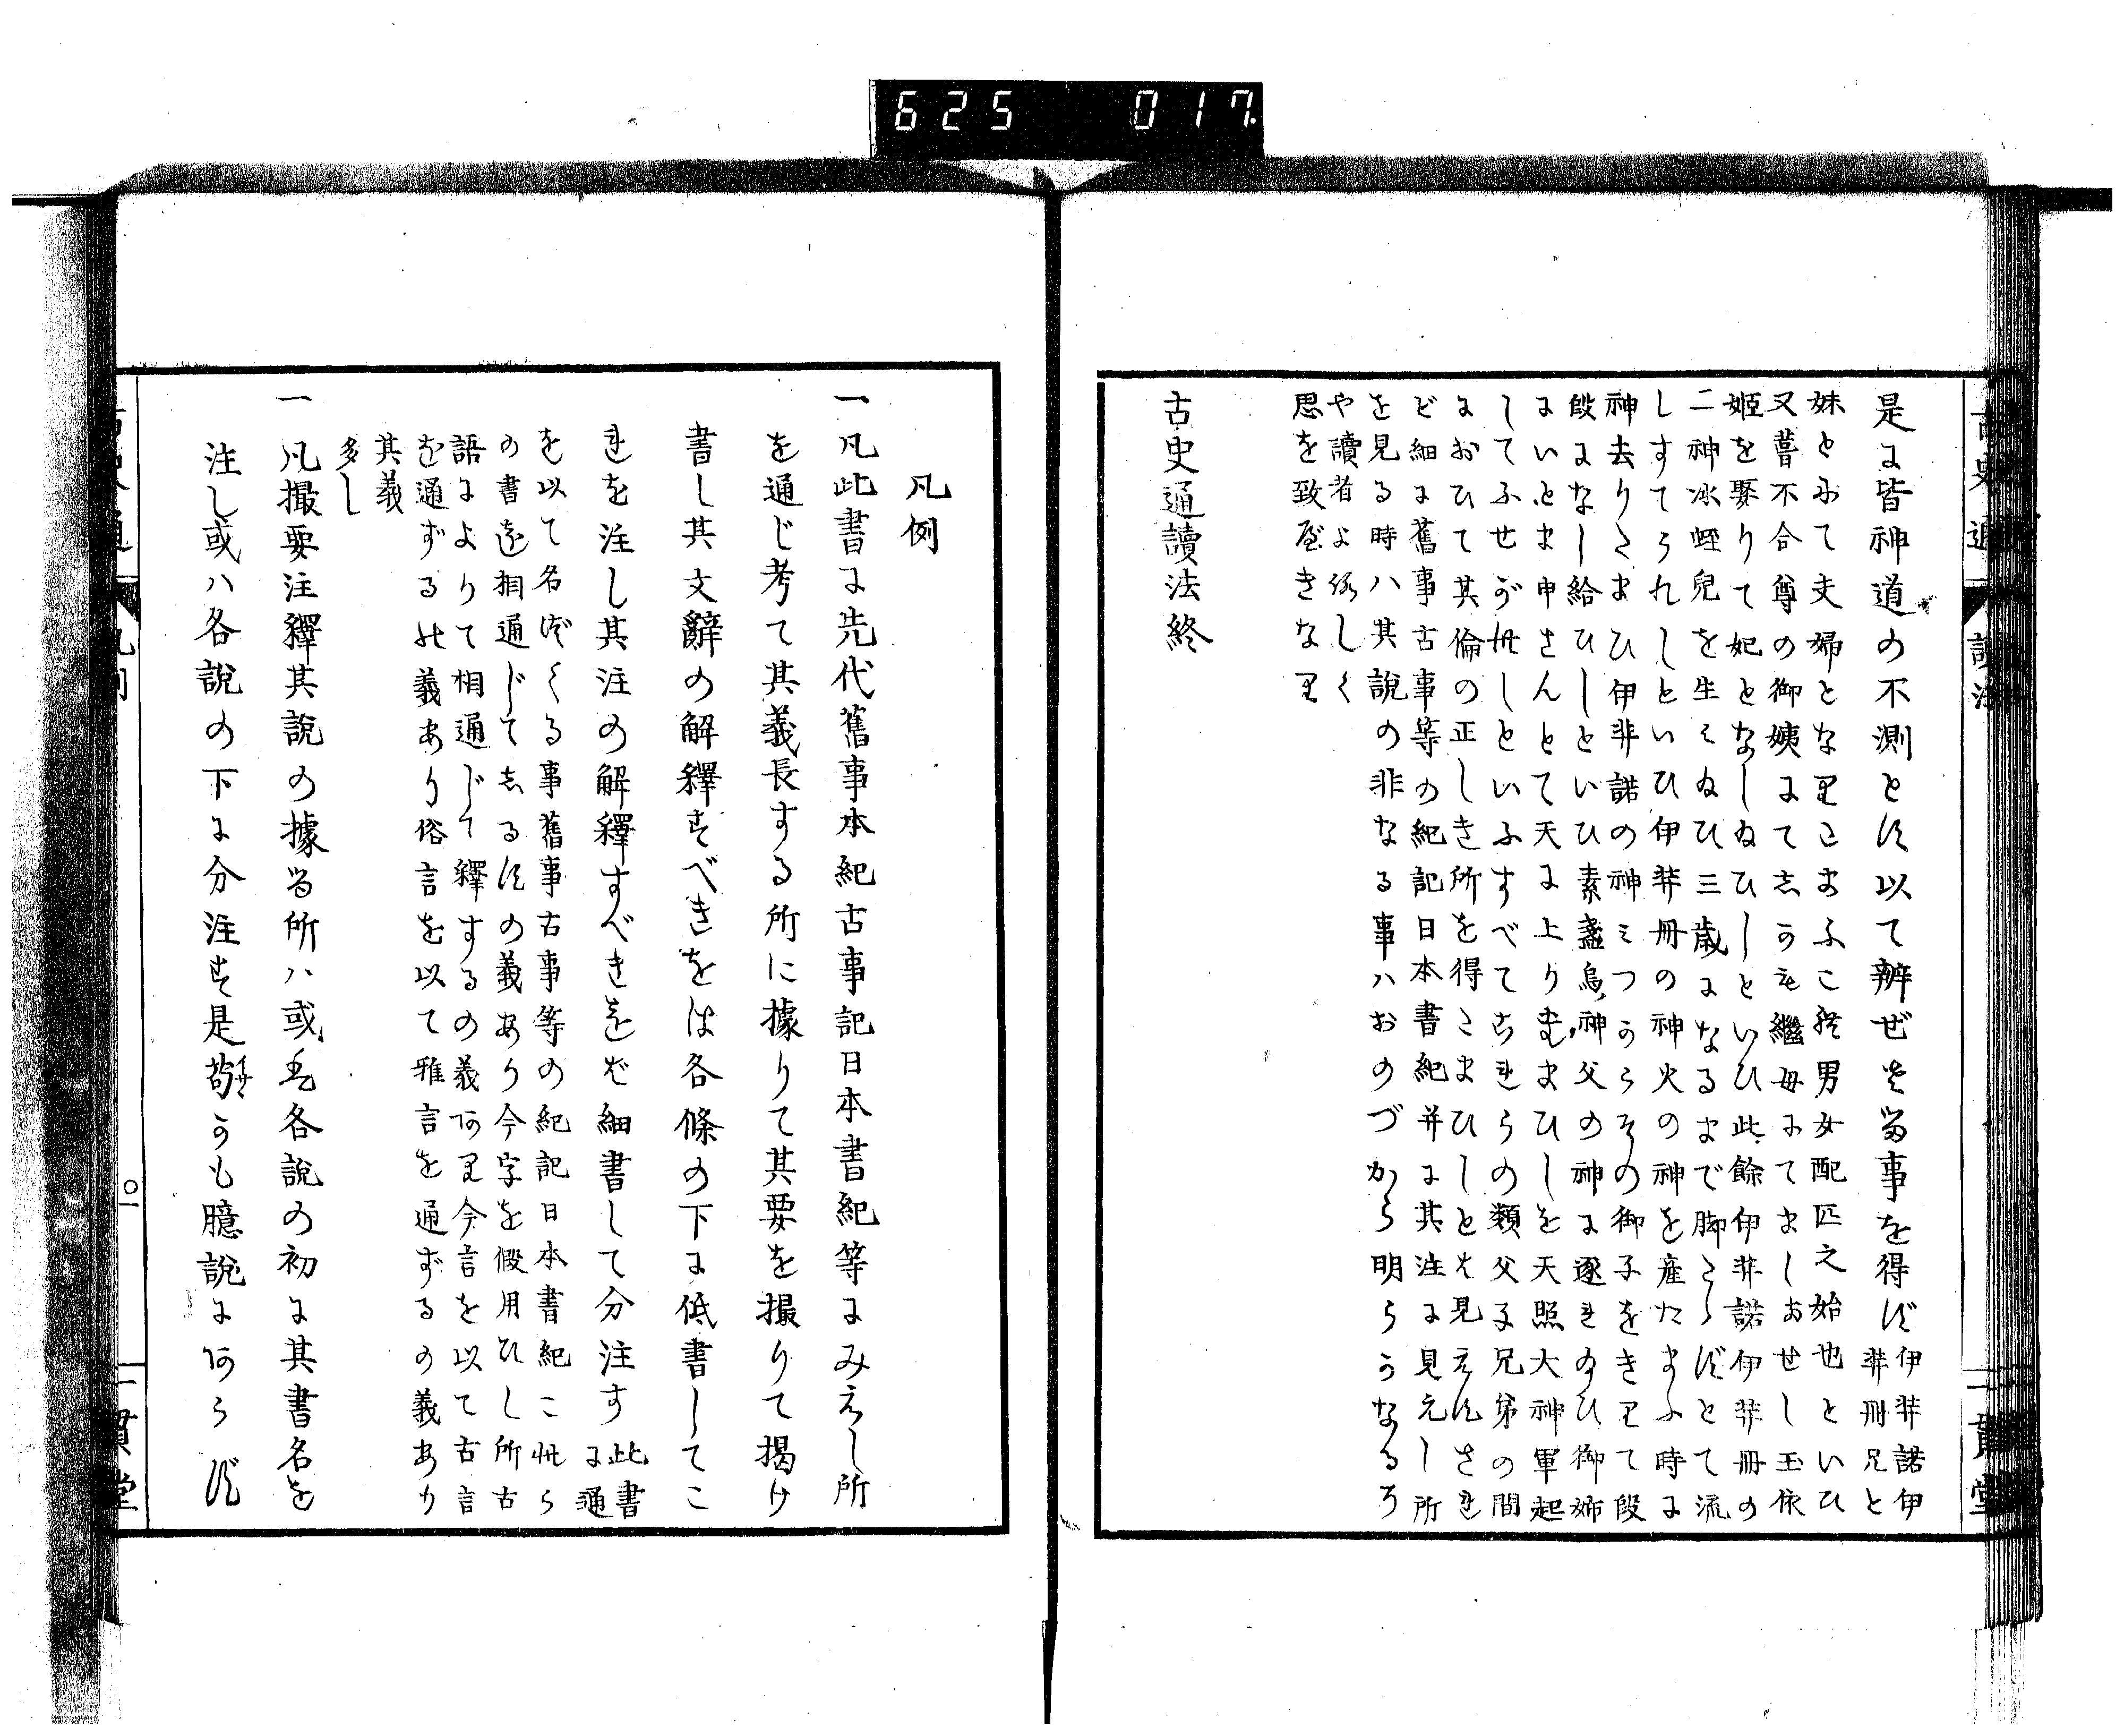 625 017
是に皆神道の不測とす以て辨ぜざる事を得ず 伊弉諾伊
弉冊兄と
妹とにて夫婦となりたまふこれ男女配匹之始也といひ
又葺不合尊の御姨にてしかも継母にてましませし玉依
姫を娶りて妃となし給ひしといひ此餘伊弉諾伊弉冊の
二神冰蛭兒を生み給ひ三歳になるまで脚たゝずとて流
しすてられしといひ伊弉冊の神火の神を産たまふ時に
神去りたまひ伊弉諾の神みづからその御子をきりて段
段になし給ひしといひ素盞烏神父の神に逐れ給ひ御姉
にいとま申さんとて天に上りたまひしを天照大神軍起
してふせがれしといふすべてこれらの類父子兄弟の間
におひて其倫の正しき所を得たまひしとは見えずされ
ど細に舊事古事等の紀記日本書紀并に其注に見えし所
を見る時ハ其說の非なる事ハおのづから明らかなるら
や讀者よろしく
思を致べきなり
古史通讀法終
凡例
一凡此書に先代舊事本紀古事記日本書紀等にみえし所
を通じ考て其義長する所に據りて其要を撮りて揭け
書し其文辭の解釋すべきをは各條の下に低書してこ
れを注し其注の解釋すべきをば細書して分注す 此書
に通
を以て名づくる事舊事古事等の紀記日本書紀これら
の書を相通じてしるすの義あり今字を假用ひし所古
語によりて相通じて釋するの義あり今言を以て古言
を通ずるの義あり俗言を以て雅言を通ずるの義あり
其義
多し
一凡撮要注釋其說の據る所ハ或は各說の初に其書名を
注し或ハ各說の下に分注す是苟も臆說にあらず
一貫堂